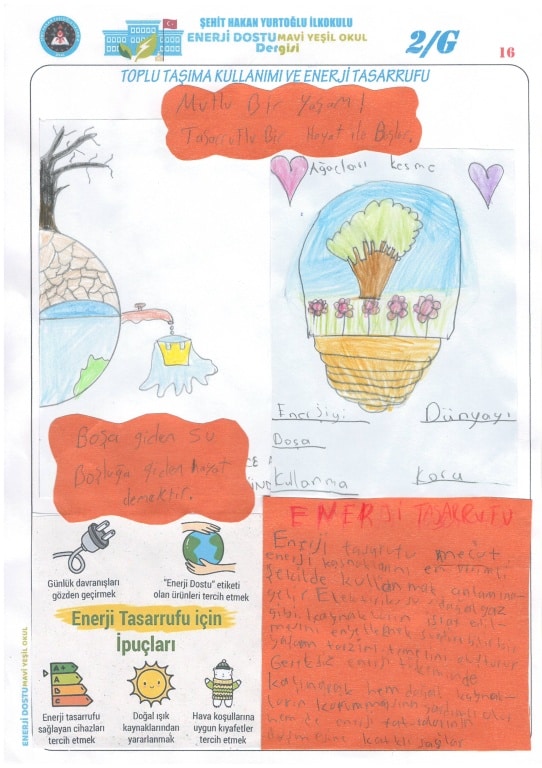 ŞEHİT HAKAN YURTOĞLU İLKOKULU
ENERJİ DOSTU MAVİ YEŞİL OKUL
Dergisi
2/G
16
TOPLU TAŞIMA KULLANIMI VE ENERJİ TASARRUFU
Mutlu Bir Yaşam!
Tasarruflu Bir Hayat ile Başlar.
Ağaçları kesme
Enerjiyi Dünyayı
Boşa
Kullanma Koru
Boşa giden su
Boşluğa giden hayat
demektir.
Günlük davranışları
gözden geçirmek
"Enerji Dostu" etiketi
olan ürünleri tercih etmek
Enerji Tasarrufu için
İpuçları
A+
A
B
C
Enerji tasarrufu
sağlayan cihazları
tercih etmek
Doğal ışık
kaynaklarından
yararlanmak
Hava koşullarına
uygun kıyafetler
tercih etmek
ENERJİ TASARRUFU
Enerji tasarrufu mevcut
enerji kaynaklarını en verimli
şekilde kullanmak anlamına
gelir Elektrik su doğal gaz
gibi kaynakların israf edil-
mesini engellemek sürdürülebilir
yaşam tarzını temelini oluşturur
Gereksiz enerji tüketiminde
kaçınarak hem doğal kaynak-
ların korunmasına yardımcı olur
hem de enerji
katkı sağlar
ENERJİ DOSTU MAVİ YEŞİL OKUL